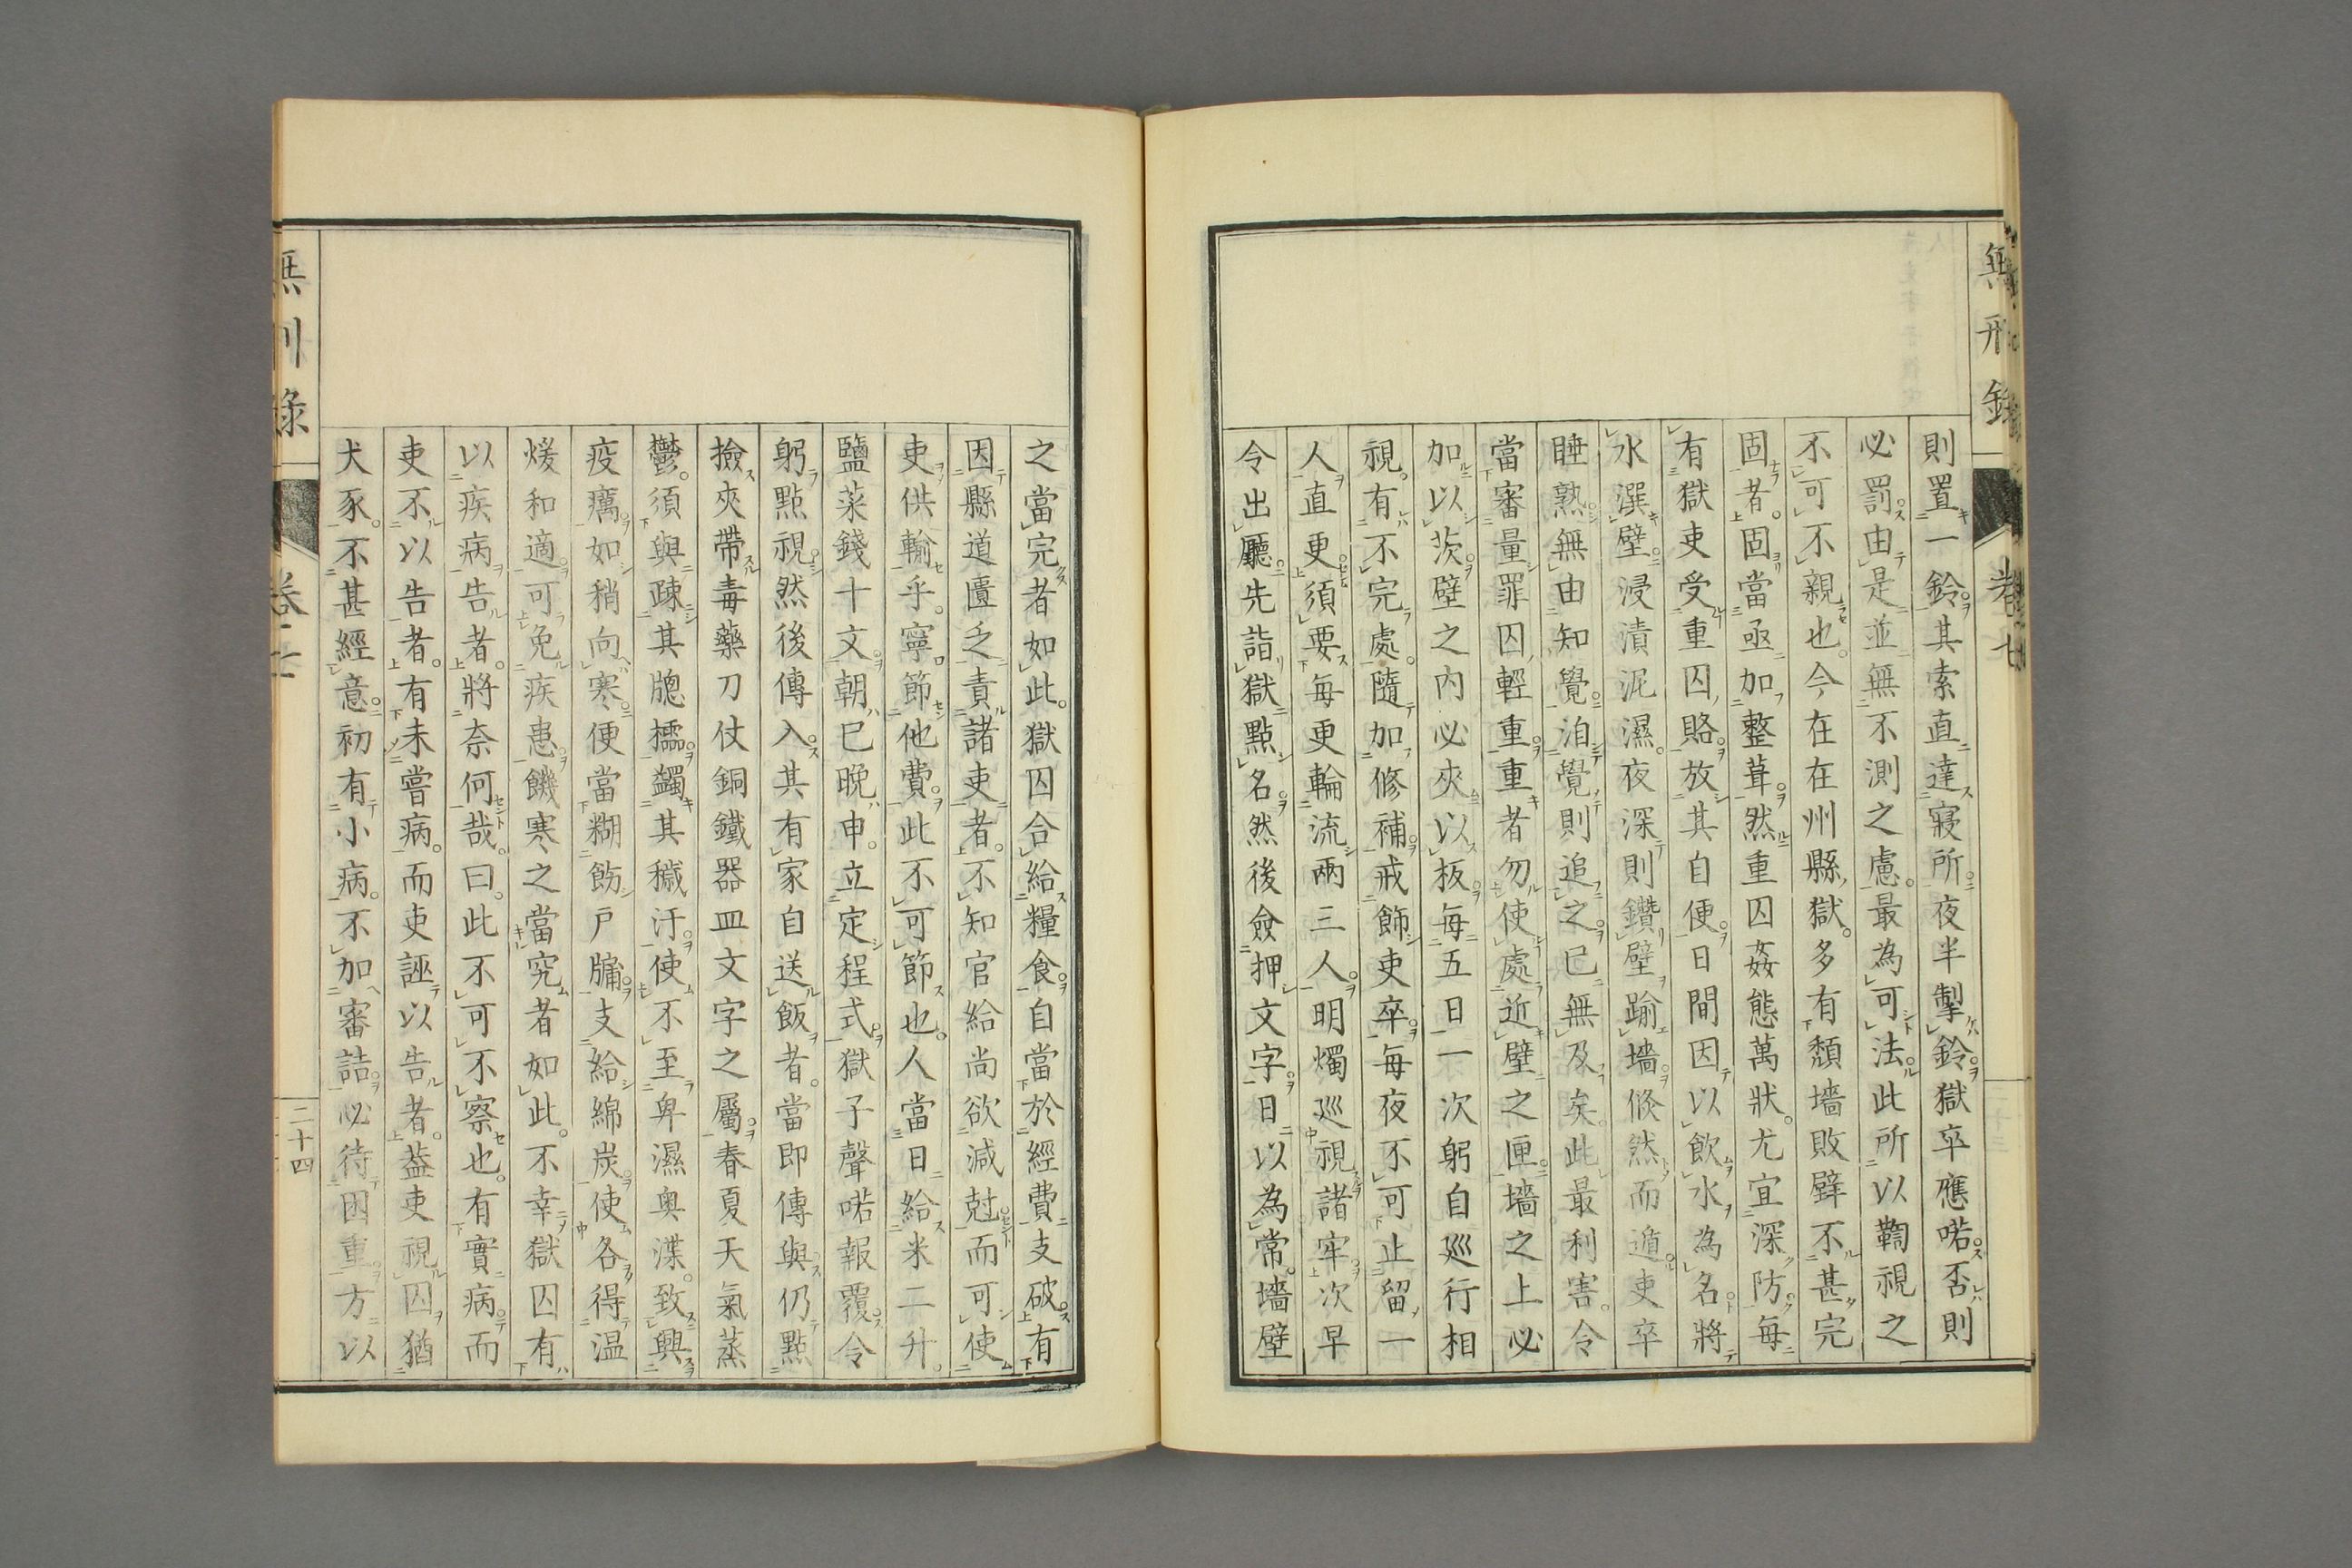 無刑錄
卷七
則置一鈴其索直達寢所夜半掣鈴獄卒應喏否則
必罰由是並無不測之慮最為可法此所以鞫視之
不可不親也今在在州縣獄多有頹墻敗壁不甚完
固者固當亟加整葺然重囚姦態萬狀尤宜深防每
有獄吏受重囚賂放其自便日間因以飲水為名將
水潠壁浸漬泥濕夜深則鑽壁踰墻倐然而遁吏卒
睡熟無由知覺洎覺則追之已無及矣此最利害令
當審量罪囚輕重重者勿使處近壁之匣墻之上必
加以茨壁之内必夾以板每五日一次躬自巡行相
視有不完處隨加修補戒飾吏卒每夜不可止留一
人直更須要每更輪流兩三人明燭巡視諸牢次早
令出廳先詣獄點名然後僉押文字日以為常墻壁
之當完者如此獄囚合給糧食自當於經費支破有
因縣道匱乏責諸吏者不知官給尚欲減尅而可使
吏供輸乎寧節他費此不可節也人當日給米二升
鹽菜錢十文朝已晩申立定程式獄子聲喏報覆令
躬點視然後傳入其有家自送飯者當即傳與仍點
撿夾帶毒藥刀仗銅鐵器皿文字之屬春夏天氣蒸
鬱須與疎其牕櫺蠲其穢汙使不至卑濕奥渫致興
疫癘如稍向寒便當糊飭戸牖支給綿炭使各得温
煖和適可免疾患饑寒之當究者如此不幸獄囚有
以疾病告者將奈何哉曰此不可不察也有實病而
吏不以告者有未嘗病而吏誣以告者葢吏視囚猶
犬豕不甚經意初有小病不加審詰必待困重方以
無刑錄
二十四